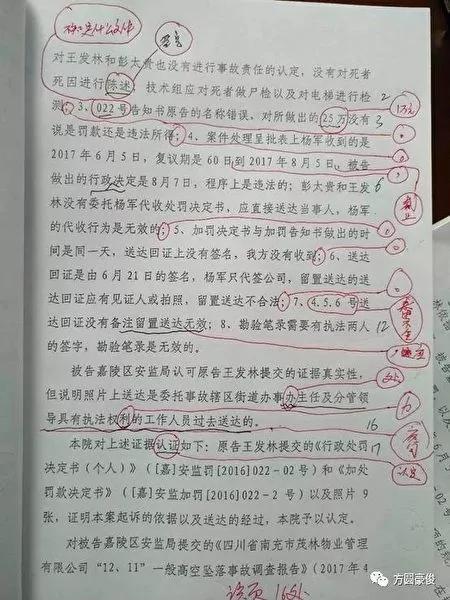 对王发林和彭太贵也没有进行事故责任的认定，没有对死者
死因进行陈述，技术组应对死者做尸检以及对电梯进行检
测；3、022号告知书原告的名称错误，对所做出的25万没有
说是罚款还是违法所得；4、案件处理呈批表上杨军收到的是
2017年6月5日，复议期是60日到2017年8月5日，被告
做出的行政决定是8月7日，程序上是违法的；彭太贵和王发
林没有委托杨军代收处罚决定书，应直接送达当事人，杨军
的代收行为是无效的；5、加罚决定书与加罚告知书做出的时
间是同一天，送达回证上没有签名，我方没有收到；6、送达
回证是由6月21日的签名，杨军只代签公司，留置送达的送
达回证应有见证人或拍照，留置送达不合法；7、4.5.6号送
达回证没有备注留置送达无效；8、勘验笔录需要有执法两人
的签字，勘验笔录是无效的。
被告嘉陵区安监局认可原告王发林提交的证据真实性，
但说明照片上送达是委托事故辖区街道办事办主任及分管领
导具有执法权利的工作人员过去送达的。
本院对上述证据认证如下：原告王发林提交的《行政处罚
决定书（个人）》（[嘉]安监罚[2016]022－02号）和《加处
罚款决定书》（[嘉]安监加罚[2016]022－2 号）以及照片 9
张，证明本案起诉的依据以及送达的经过，本院予以认定。
对被告嘉陵区安监局提交的《四川省南充市茂林物业管理
有限公司“12、11”一般高空坠落事故调查报告》（2017年4
2
3
万元
6
12
处
力
16
17
认定
该页16处
方圆豪俊